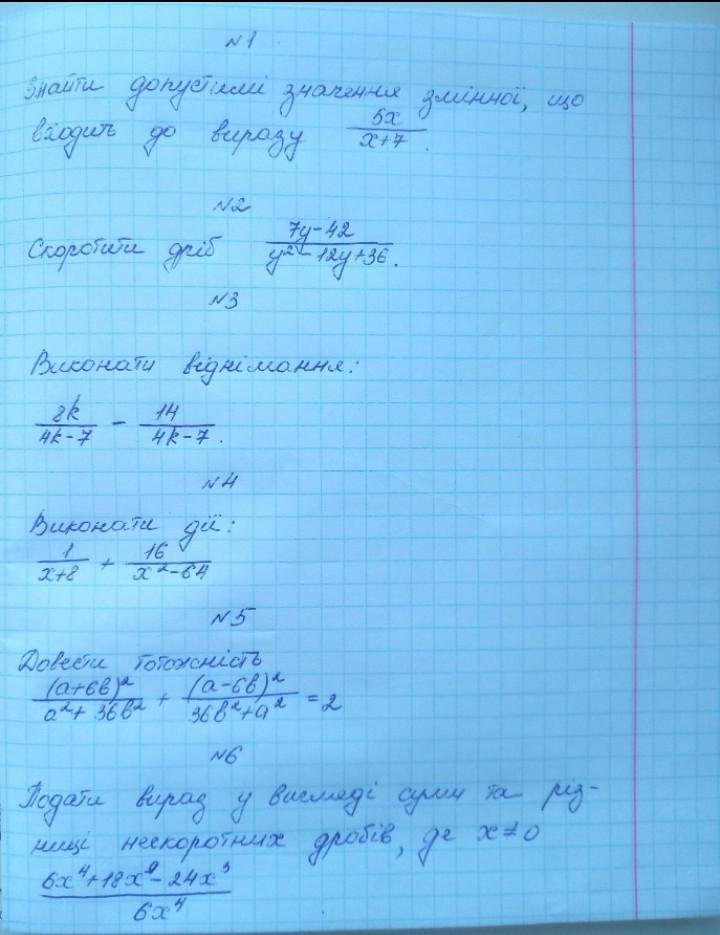 №1
Знайти допустимі значення змінної, що
входить до виразу 5x/(x+7).
№2
Скоротити дріб (7y-42)/(y²-12y+36).
№3
Виконати віднімання:
8k/(4k-7) - 14/(4k-7).
№4
Виконати дії:
1/(x+8) + 16/(x²-64)
№5
Довести тотожність
(a+6b)²/(a²+36b²) + (a-6b)²/(36b²+a²) = 2
№6
Подати вираз у вигляді суми та різ-
ниці нескоротних дробів, де x≠0
(6x⁴+18x⁹-24x³)/(6x⁴)